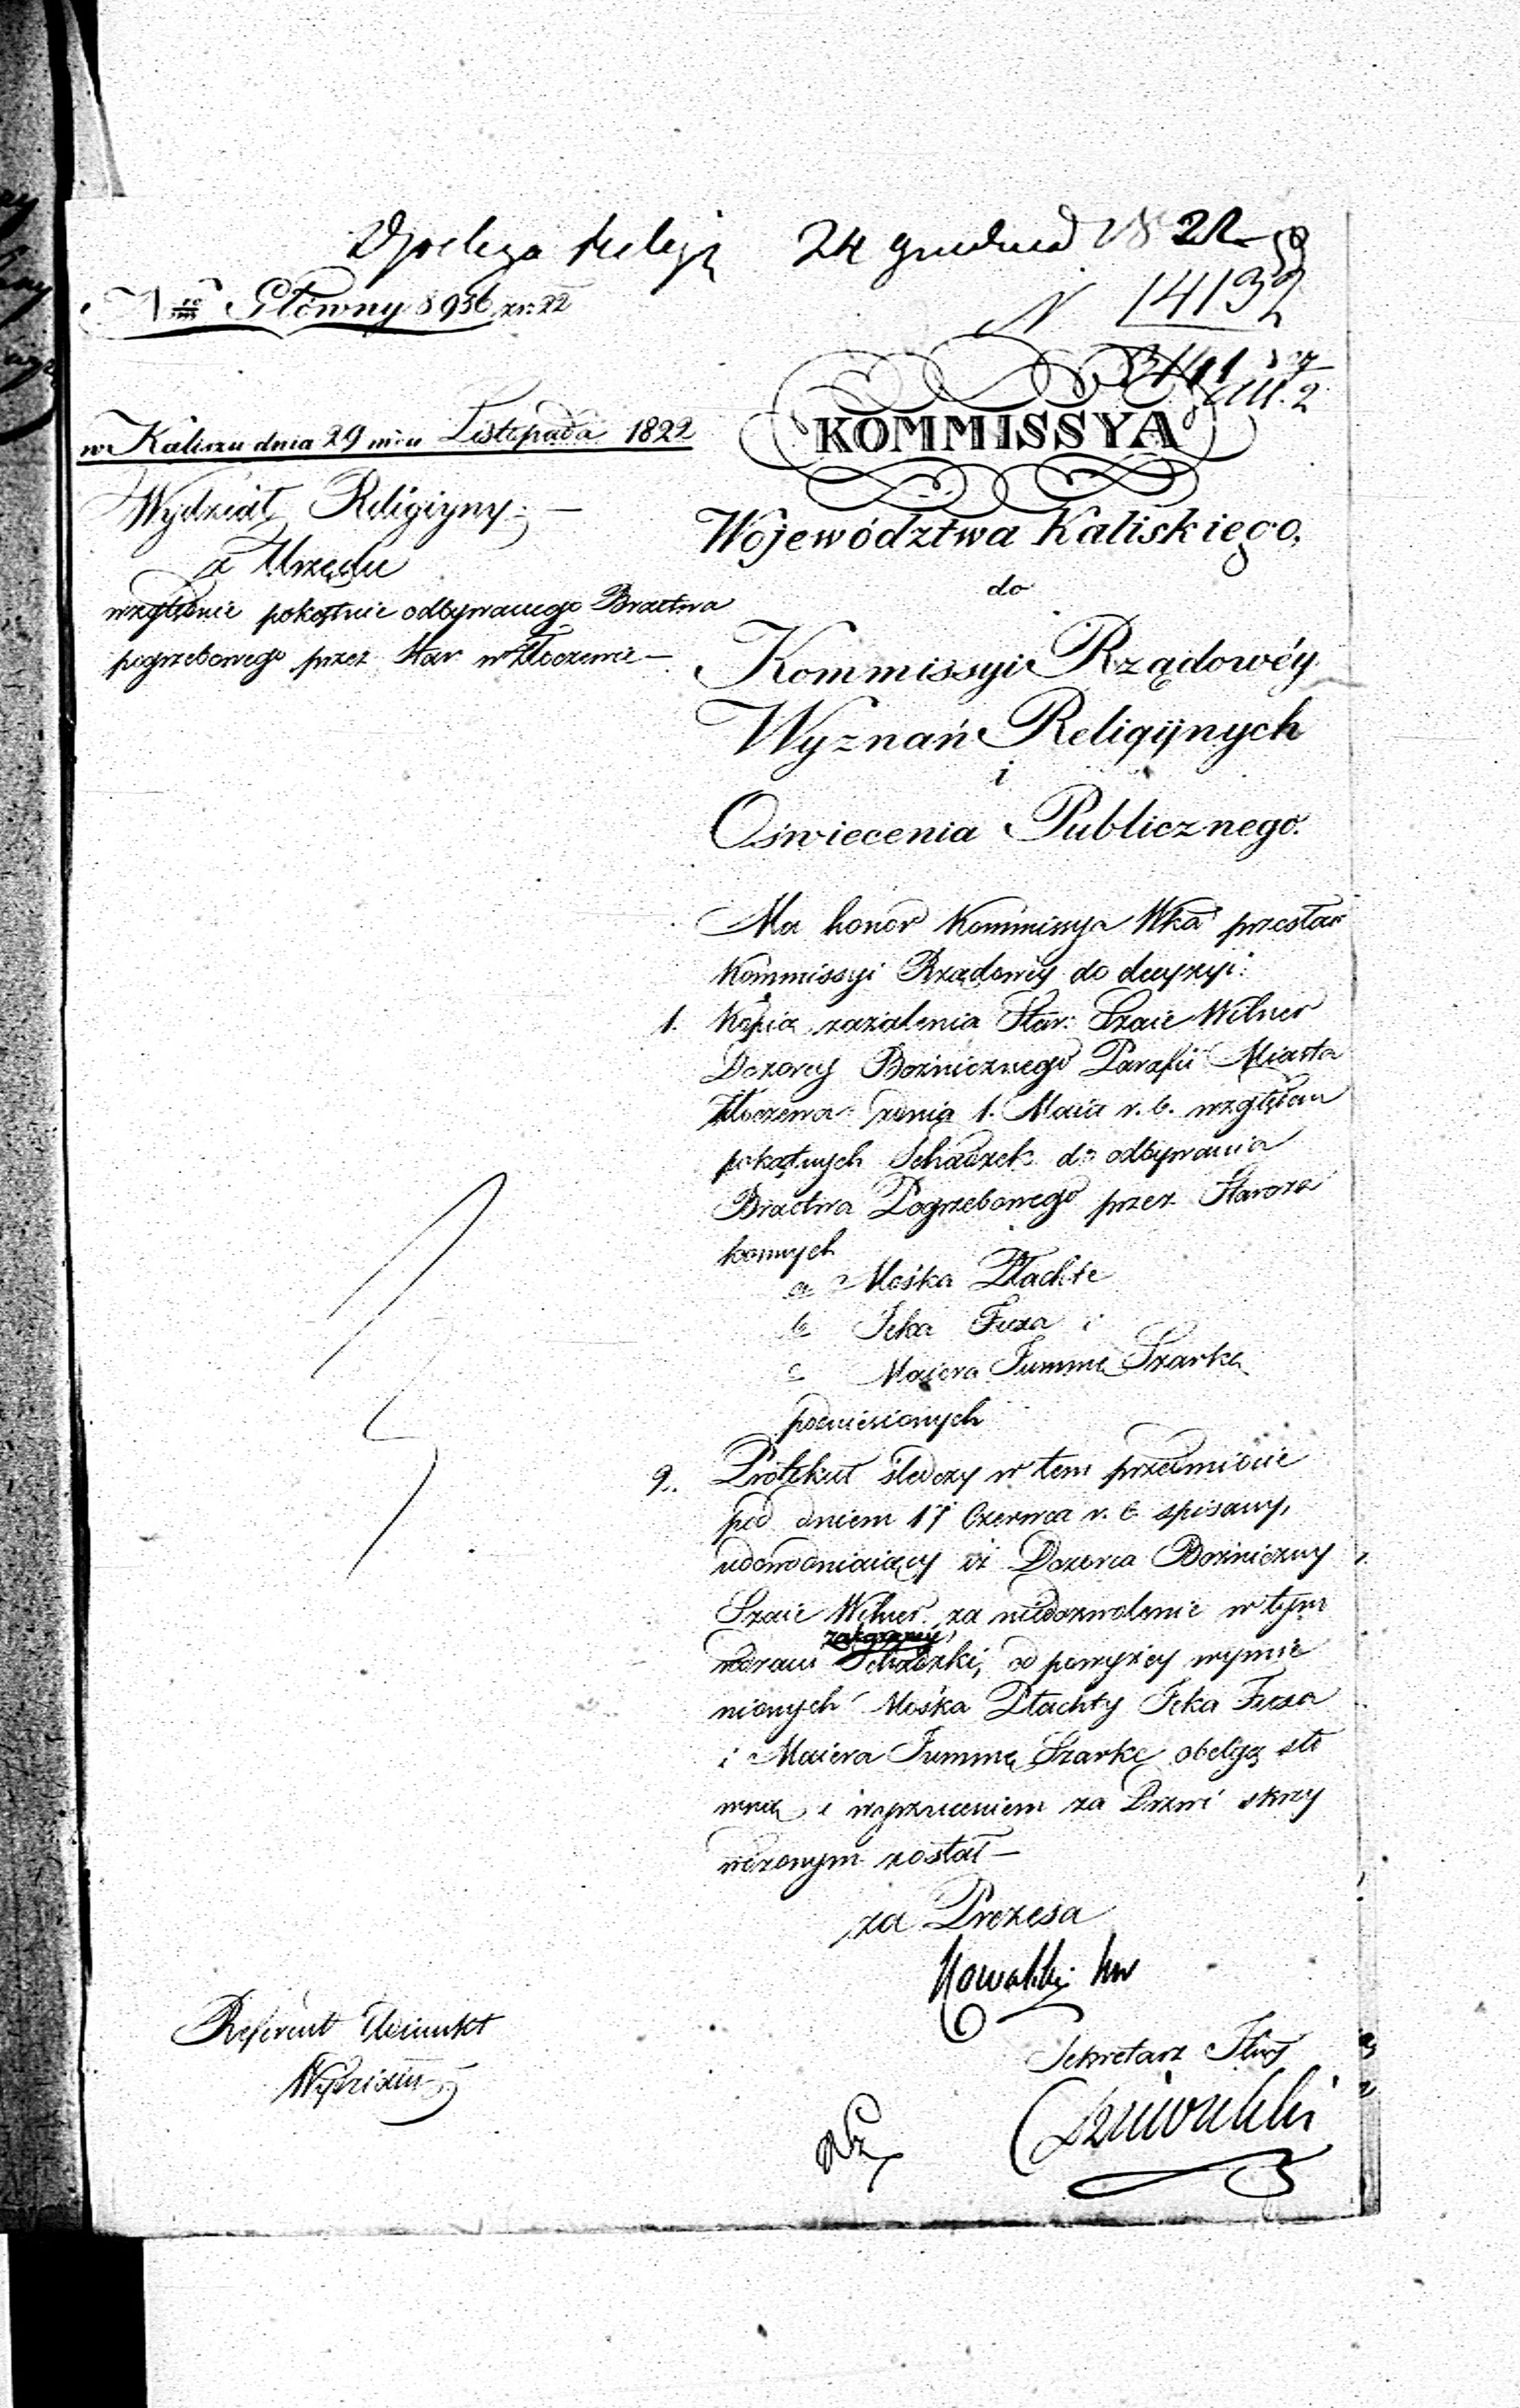 24 grudnia 1822
Nro Główny 8936 xr: 22
N 14132
w Kaliszu dnia 29 mca Listopada 1822
KOMMISSYA
Wydział Religiyny. —
z Urzędu
względnie pokątnie odbywanego Bractwa
pogrzebowego przez Star w Złoczewie —
Województwa Kaliskiego,
do
Kommissyi Rządowéy
Wyznań Religijnych
i
Oświecenia Publicznego.
Ma honor Kommissya Wka przesłać
Kommissyi Rządowey do decyzyi:
1. Kopią zażalenia Star: Szaie Wilner
Dozorcy Bożnicznego Parafii Miasta
Złoczewa z dnia 1. Maia r. b. względem
pokątnych Schadzek do odbywania
Bractwa Pogrzebowego przez Staroza
konnych
a Mośka Płachte
b Icka Fuxa i
c Maiera Jumme Szarke
podniesionych
2. Protokuł śledczy w tem przedmiocie
pod dniem 17 Czerwca r. b. spisany,
udowodniaiący iż Dozorca Bożniczny
Szaie Wilner za niedozwolenie w tym
rodzaiu Schadzki, od powyżey wymie
nionych Mośka Płachty Icka Fuxa
i Maiera Jummę Szarke obelgą sło
wną i wyrzuceniem za Drzwi skrzy
wdzonym został —
za Prezesa
Nowakki
Referent Adiunkt
Sekretarz Jlny